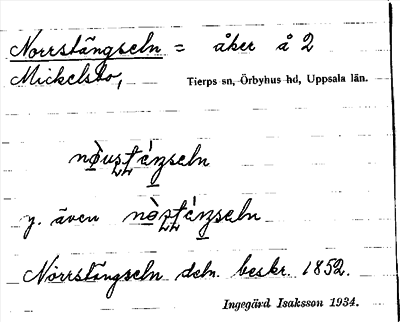 Norrstängseln = åker å 2
Mickelsbo, Tierps sn, Örbyhus hd, Uppsala län.
y. även
Norrstängseln deln. beskr. 1852.
Ingegärd Isaksson 1934.